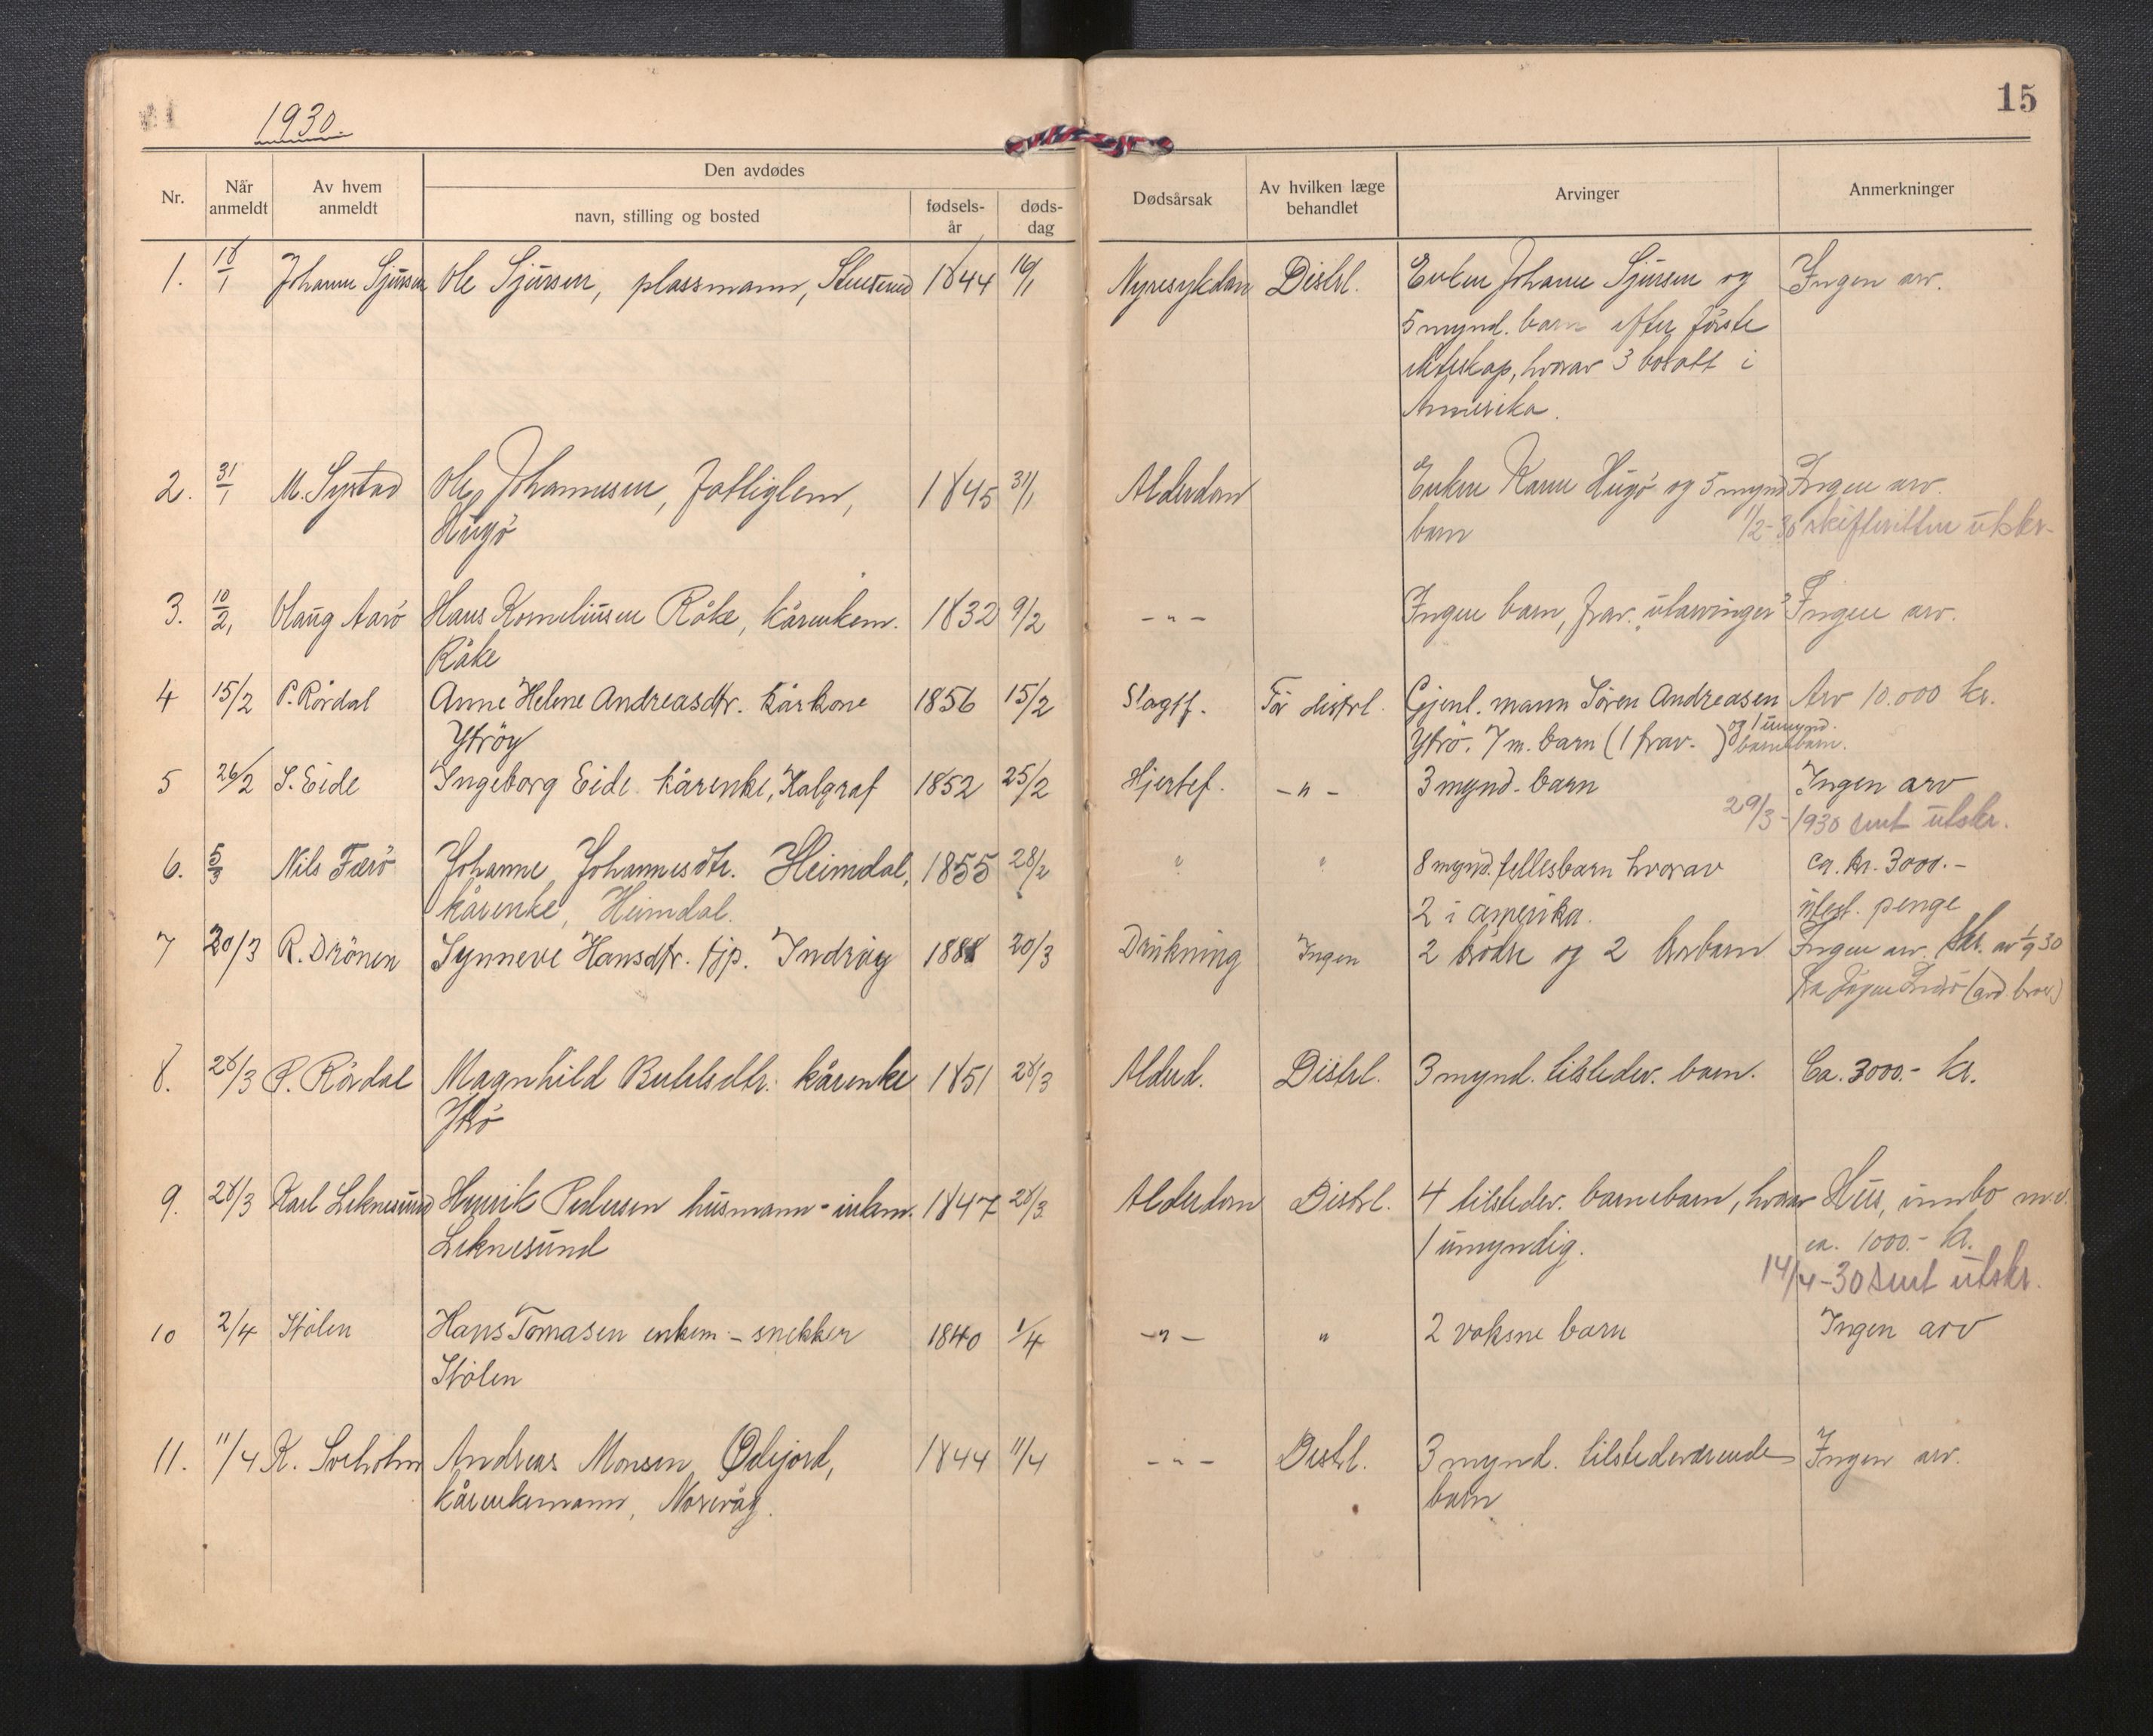 15
1930.
Nr.
Når anmeldt
Av hvem anmeldt
Den avdødes
navn, stilling og bosted
fødsels-år
døds-dag
Dødsårsak
Av hvilken læge behandlet
Arvinger
Anmerkninger
1. 18/1 Johanne Sjursen Ole Sjursen, plassmann, 1844 16/1 Nyresykdom Distrl. Enken Johanne Sjursen og Ingen arv.
5 mynd. barn efter første
ekteskap, hvorav 3 bosatt i
Amerika.
2. 31/1 M. Systad Ole Johannesen, fattiglem, 1845 31/1 Alderdom Enken Karen Hugö og 5 mynd Ingen arv.
Hugö barn 1/2-30 utskr.
3. 10/2, Olaug Aarö Hans Korneliusen Råke, kårenkem. 1832 9/2 -"- Ingen barn, frav. utarvinger Ingen arv.
Råke
4 15/2 P. Rördal Anne Helene Andreasdtr. Kårkone 1856 15/2 Slagtf. Før distrl. Gjenl. mann Sören Andreasen Arv 10.000 kr.
Ytröy Ytrö. 7 m. barn (1 frav. ) og 1 umynd. barnebarn.
5 26/2 S. Eide Ingeborg Eide kårenke, Kalgraf 1852 25/2 Hjertef. -"- 3 mynd. barn Ingen arv
29/3-1930 sent utskr.
6. 5/3 Nils Færö Johanne Johannesdtr. Heimdal, 1855 28/2 " " 8 mynd. fellesbarn hvorav ca. kr. 3000.-
kårenke, Heimdal. 2 i amerika. utest. penge
7 20/3 R. Drönen Synneve Hansdtr. tjp. Indröy 1888 20/3 Drukning Ingen 2 brödre og 2 brorbarn Ingen arv. Skr. av 1/9 30
fra
8. 28/3 P. Rördal Magnhild Bertelsdtr. kårenke 1851 28/3 Alderd. Distrl. 3 mynd. tilstedev. barn. Ca. 3000.- kr.
Ytrö
9. 28/3 Karl Leknesund Henrik Pedersen husmann-enkem. 1847 28/3 Alderdom Distrl. 4 tilstedev. barnebarn, hvorav Hus, innbo m.v.
Leknesund 1 umyndig. ca. 1000.- kr.
14/4-30 sent utskr.
10 2/4 Stölen Hans Tomasen enkem.- snekker 1840 1/4 -"- " 2 voksne barn Ingen arv
Stölen
11. 11/4 K. Soleholm Andreas Monsen Ødejord, 1844 11/4 -"- Distrl. 3 mynd. tilstedeværende Ingen arv.
kårenkemann, Norevåg. barn